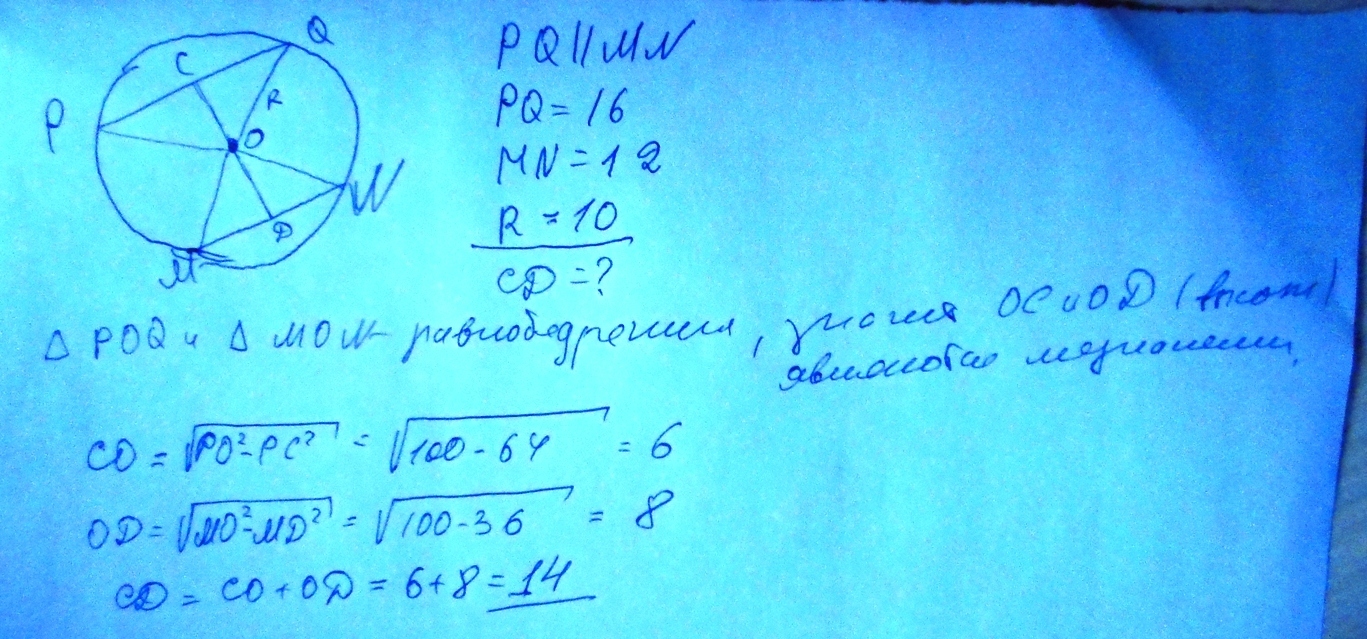 Q
C
P
R
O
N
D
M
PQ||MN
PQ=16
MN=12
R=10
CD=?
△ POQ и △ MON равнобедренные, значит OC и OD (высоты)
являются медианами.
CO = √PO²-PC² = √100-64 = 6
OD = √MO²-MD² = √100-36 = 8
CD = CO+OD = 6+8 = 14